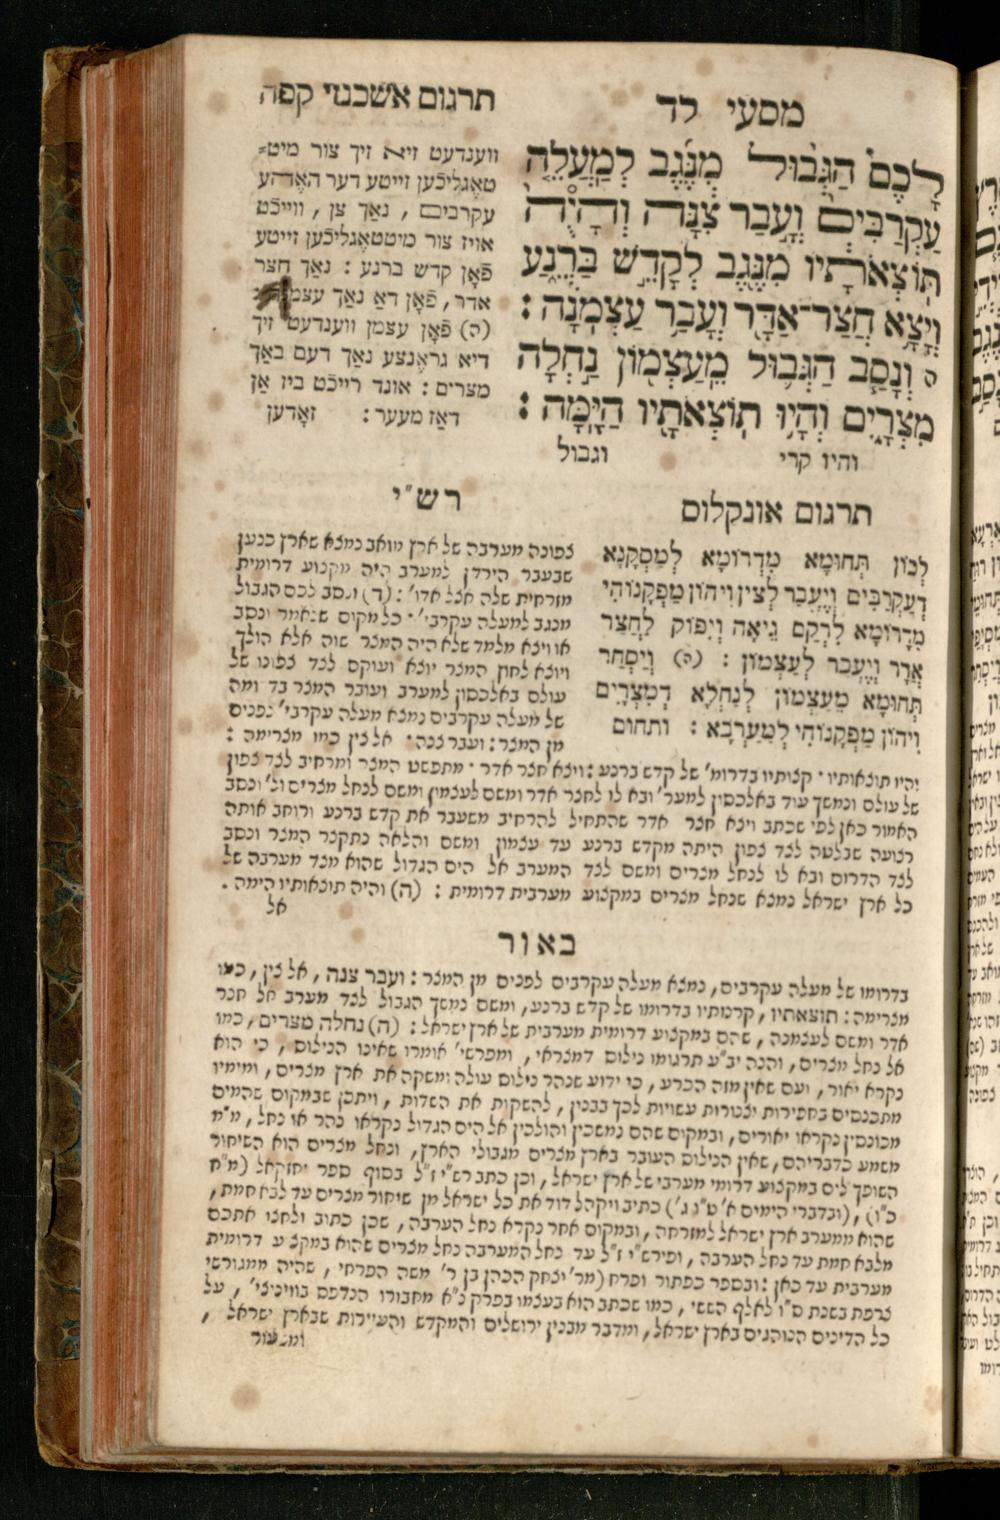 מסעי לד
תרגום אשכנזי קפה
לָכֶם הַגְּבוּל מִנֶּגֶב לְמַעֲלֵה
עַקְרַבִּים וְעָבַר צִנָה וְהָיֻה
תּוֹצְאֹתָיו מִנֶּגֶב לְקָדֵשׁ בַּרְנֵעַ
וְיָצָא חֲצַר־אַדָּר וְעָבַר עַצְמֹנָה׃
ה וְנָסַב הַגְּבוּל מֵעַצְמוֹן נַחְלָה
מִצְרָיִם וְהָיוּ תוֹצְאֹתָיו הַיָּמָּה׃
והיו קרי וגבול
ווענדעט זיא זיך צור מיט=
טאָגליכֿען זייטע דער האָהע
עקרבים , נאַך צן , ווייכֿט
אויז צור מיטטאָגליכֿען זייטע
פֿאָן קדש ברנע : נאַך חצר
אדר , פֿאָן דאַ נאַך עצמן :
(ה) פֿאָן עצמן ווענדעט זיך
דיא גראֶנצע נאַך דעם באַך
מצרים : אונד רייכֿט ביז אַן
דאַז מעער : זאָדען
תרגום אונקלוס
לְכוֹן תְּחוּמָא מִדְרוֹמָא לְמַסְקָנָא
דְעַקְרַבִּים וְיֶעְבַר לְצִין וִיהוֹן מַפְקָנוֹהִי
מִדָרוֹמָא לִרְקַם גֵיאָה וְיִפּוֹק לַחֲצַר
אַדָר וְיֶעְבַר לְעַצְמוֹן : (ה) וְיַסְחַר
תְּחוּמָא מֵעַצְמוֹן לְנַחְלָא דְמִצְרָיִם
וִיהוֹן מַפְקָנוֹהִי לְמַעַרְבָא : ותחום
רש״י
צפונה מערבה של ארץ מואב נמצא שארץ כנען
שבעבר הירדן למערב היה מקצוע דרומית
מזרחית שלה אצל אדו׳ : (ד) ונסב לכם הגבול
מנגב למעלה עקרבי׳ · כל מקום שנאמר ונסב
או ויצא מלמד שלא היה המצר שוה אלא הולך
ויוצא לחוץ המצר יוצא ועוקם לצד צפונו של
עולם באלכסון למערב ועובר המצר בד ומה
של מעלה עקרבים נמצא מעלה עקרבי׳ לפנים
מן המצר : ועבר צנה · אל צין כמו מצרימה :
והיו תוצאותיו · קצותיו בדרומ׳ של קדש ברנע : ויצא חצר אדר · מתפשט המצר ומרחיב לצד צפון
של עולם ונמשך עוד באלכסון למער׳ ובא לו לחצר אדר ומשם לעצמון ומשם לנחל מצרים ול׳ ונסב
האמור כאן לפי שכתב ויצא חצר אדר שהתחיל להרחיב משעבר את קדש ברנע ורוחב אותה
רצועה שבלטה לצד צפון היתה מקדש ברנע עד עצמון ומשם והלאה נתקצר המצר ונסב
לצד הדרום ובא לו לנחל מצרים ומשם לצד המערב אל הים הגדול שהוא מצד מערבה של
כל ארץ ישראל נמצא שנחל מצרים במקצוע מערבית דרומית : (ה) והיה תוצאותיו הימה ·
אל
באור
בדרומו של מעלה עקרבים, נמצא מעלה עקרבים לפנים מן המצר : ועבר צנה , אל צין , כמו
מצרימה : תוצאתיו , קצותיו בדרומו של קדש ברנע , ומשם נמשך הגבול לצד מערב אל חצר
אדר ומשם לעצמונה , שהם במקצוע דרומית מערבית של ארץ ישראל : (ה) נחלה מצרים , כמו
אל נחל מצרים , והנה יב״ע תרגומו נילוס דמצראי , ומפרשי׳ אומרו שאינו הנילוס , כי הוא
נקרא יאור , ועם שאין מזה הכרע , כי ידוע שנהר נילוס עולה ומשקה את ארץ מצרים , ומימיו
מתכנסים בחפירות וצנורות עשויות לכך בבנין , להשקות את השדות , ויתכן שבמקום שהמים
מכונסין נקראו יאורים , ובמקום שהם נמשכין והולכין אל הים הגדול נקראו נהר או נחל , מ״מ
משמע כדבריהם , שאין הנילוס העובר בארץ מצרים מגבולי הארץ , ונחל מצרים הוא השיחור
השופך לים במקצוע דרומי מערבי של ארץ ישראל , וכן כתב רש״י ז״ל בסוף ספר יחזקאל (מ״ח
כ״ו) , (ובדברי הימים א׳ ט״ו ג׳) כתיב ויקהל דוד את כל ישראל מן שיחור מצרים עד לבא חמת ,
שהוא ממערב ארץ ישראל למזרחה , ובמקום אחר נקרא נחל הערבה , שכן כתוב ולחצו אתכם
מלבא חמת עד נחל הערבה , ופירש״י ז״ל עד נחל המערבה נחל מצרים שהוא במקצוע דרומית
מערבית עד כאן : ובספר כפתור ופרח (מר׳ יצחק הכהן בן ר׳ משה הפרחי , שהיה ממגורשי
צרפת בשנת ס״ו לאלף הששי , כמו שכתב הוא בעצמו בפרק נ״א מחבורו הנדפס בוויניציי׳ , על
כל הדינים הנוהגים בארץ ישראל , ומדבר מבנין ירושלים והמקדש והעיירות שבארץ ישראל ,